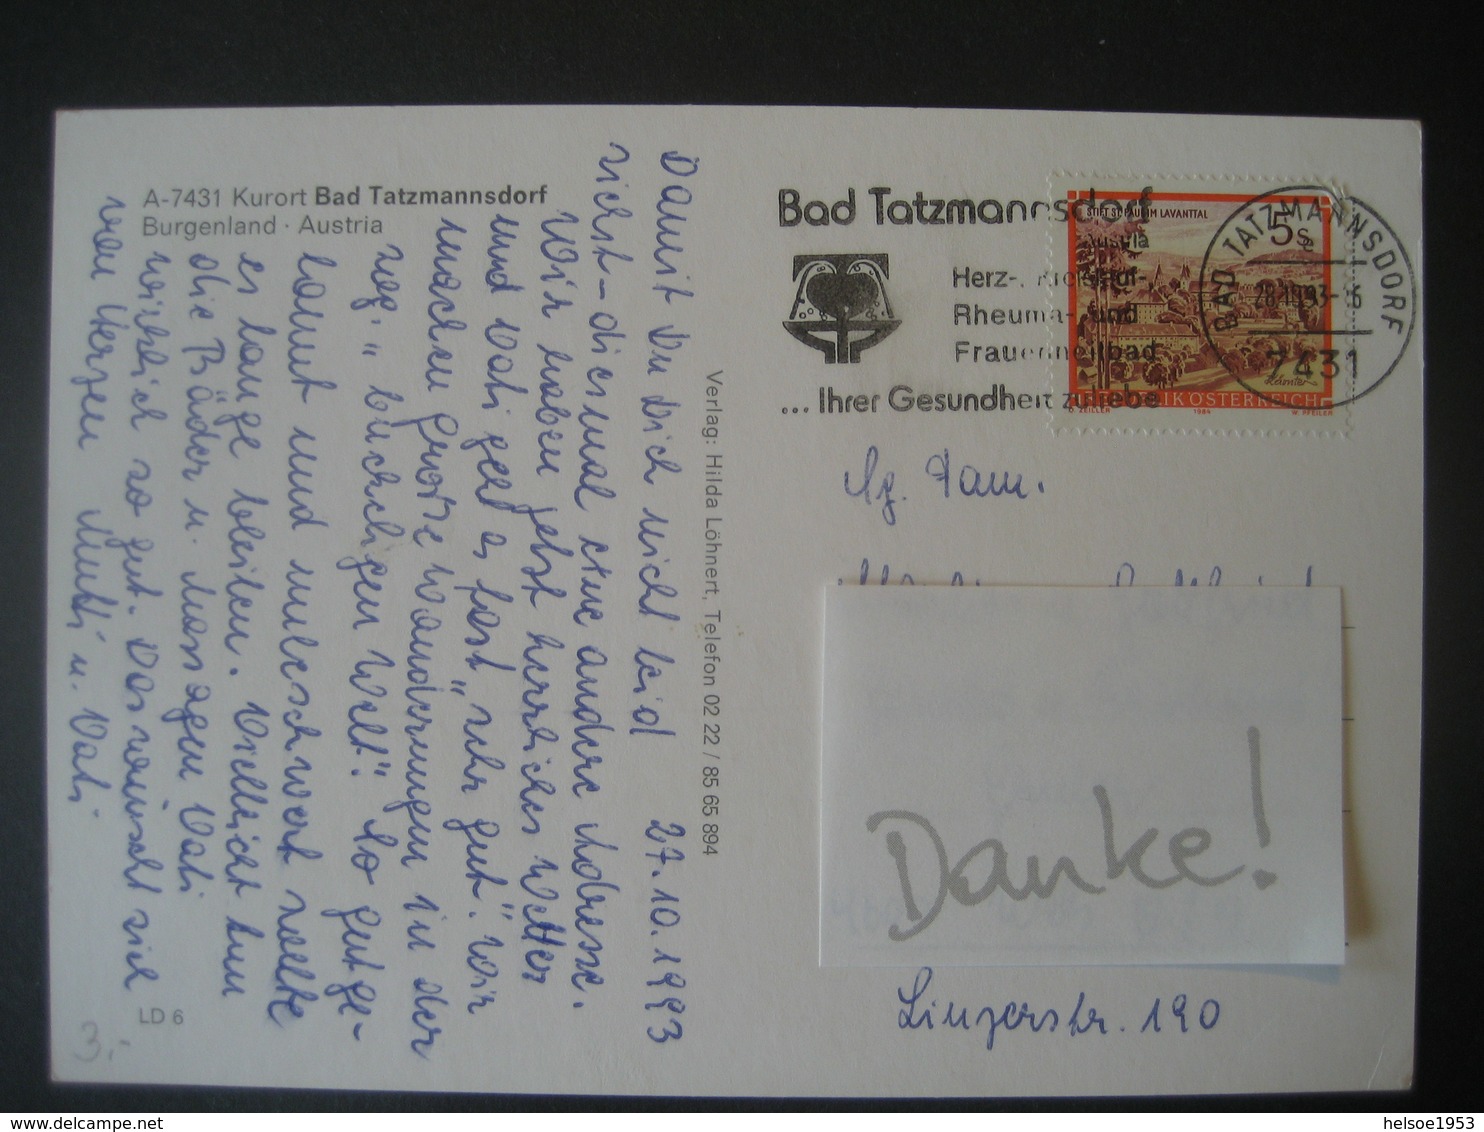 A-7431 Kurort Bad Tatzmannsdorf
Burgenland · Austria
27.10.1993
Damit Du Dich nicht leid
siehst - diesmal eine andere Adresse.
Wir haben jetzt herrliches Wetter
und Vati geht es fast "sehr gut". Wir
machen große Wanderungen in der
"buckligen Welt". So gut ge-
launt und unbeschwert sollte
es lange bleiben. Vielleicht tun
die Bäder u. Massagen Vati
wirklich so gut. Das wünscht sich
von Herzen Mutti u. Vati
LD 6
3,-
Verlag: Hilda Löhnert, Telefon 02 22 / 85 65 894
Bad Tatzmannsdorf
Herz-, Kreislauf-,
Rheuma- und
Frauenheilbad
... Ihrer Gesundheit zuliebe
STIFT ST. PAUL IM LAVANTTAL
5 S
Austria
REPUBLIK ÖSTERREICH
O. ZEILER 1984 W. PFEILER
BAD TATZMANNSDORF
28.10.93-16
7431
Fam.
Danke!
Linzerstr. 190
helsoe1953 helsoe1953